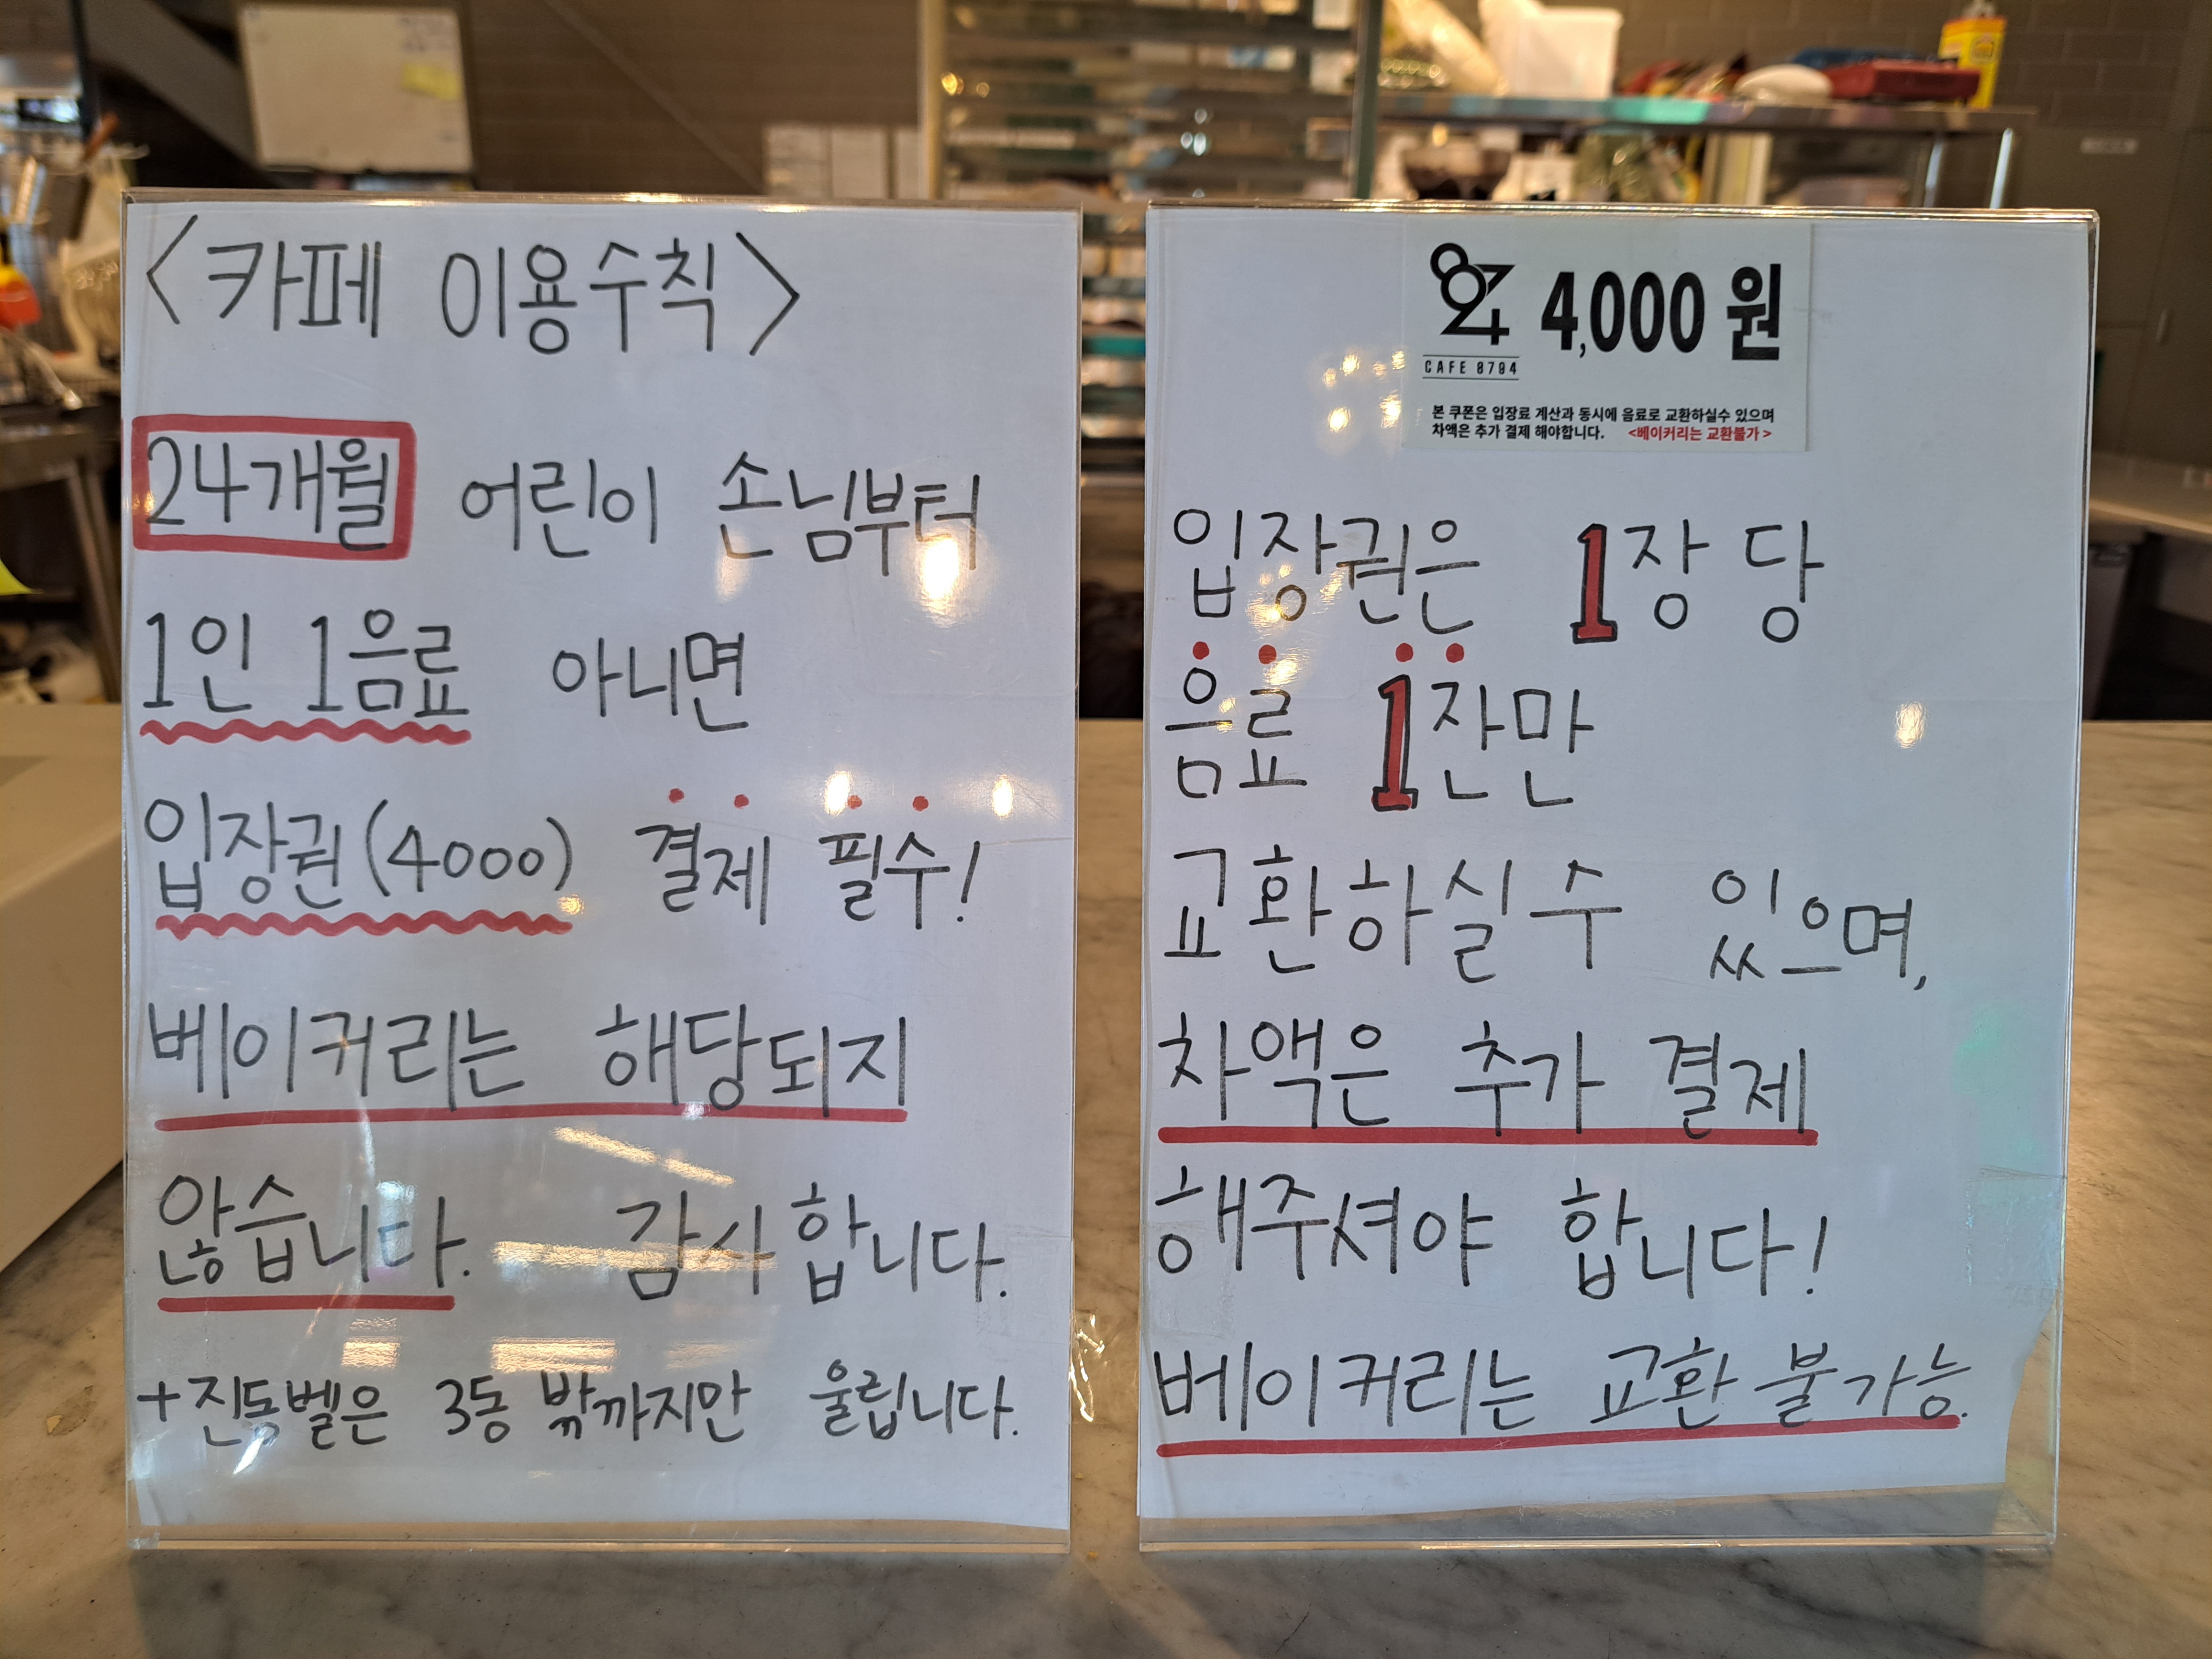 <카페 이용수칙>
24개월 어린이 손님부터
1인 1음료 아니면
입장권(4000) 결제 필수!
베이커리는 해당되지
않습니다. 감사합니다.
+진동벨은 3동 밖까지만 울립니다.
8794 4,000 원
CAFE 8794
본 쿠폰은 입장료 계산과 동시에 음료로 교환하실수 있으며
차액은 추가 결제 해야합니다. <베이커리는 교환불가 >
입장권은 1장 당
음료 1잔만
교환하실수 있으며,
차액은 추가 결제
해주셔야 합니다!
베이커리는 교환 불가능.